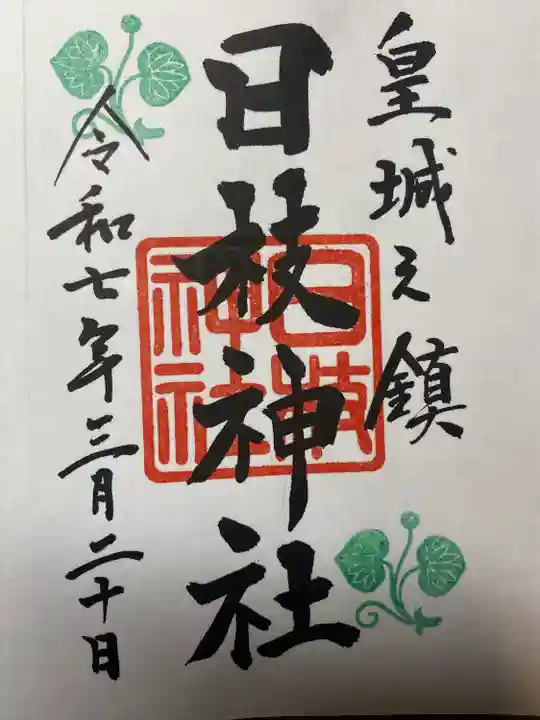 皇城之鎮
日枝神社
令和七年三月二十日
日枝
神社